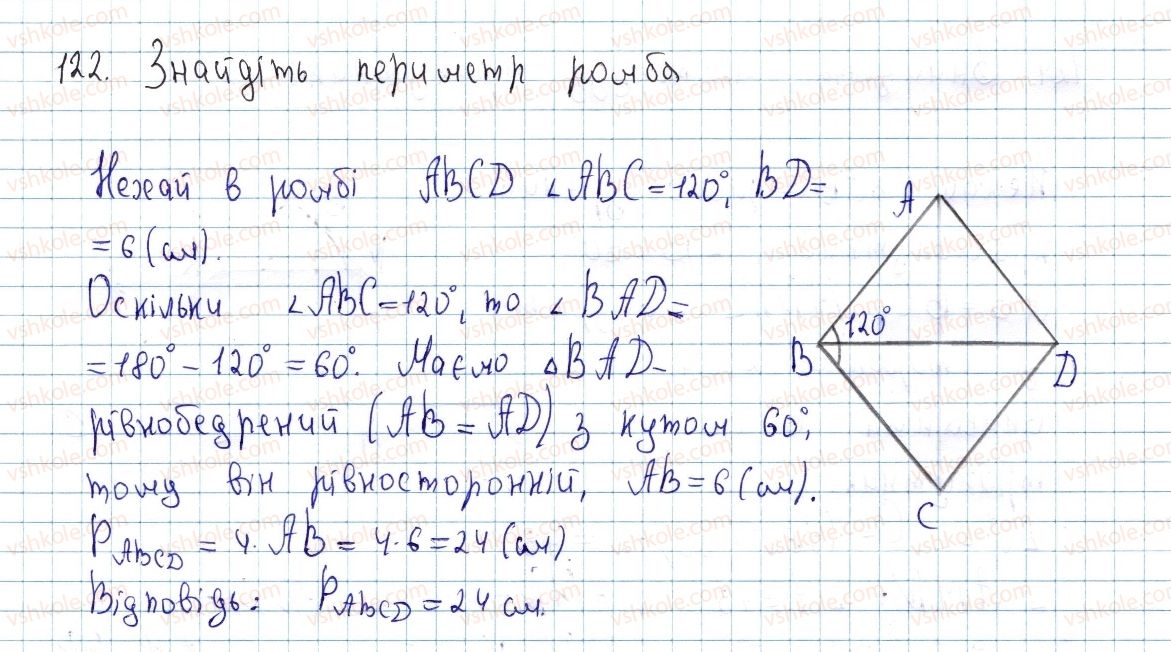 122. Знайдіть периметр ромба
Нехай в ромбі ABCD ∠ABC=120°, BD=
=6 (см).
Оскільки ∠ABC=120°, то ∠BAD=
=180°-120°=60°. Маємо △BAD-
рівнобедрений (AB=AD) з кутом 60°,
тому він рівносторонній, AB=6 (см).
P_ABCD = 4·AB = 4·6=24 (см)
Відповідь: P_ABCD = 24 см.
A
120°
B
D
C
vshkole.com